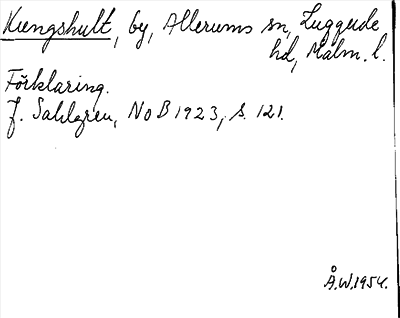 Kungshult, by, Allerums sn, Luggude
hd, Malm. l.
Förklaring.
J. Sahlgren, NoB 1923, s. 121.
Å.W.1954.